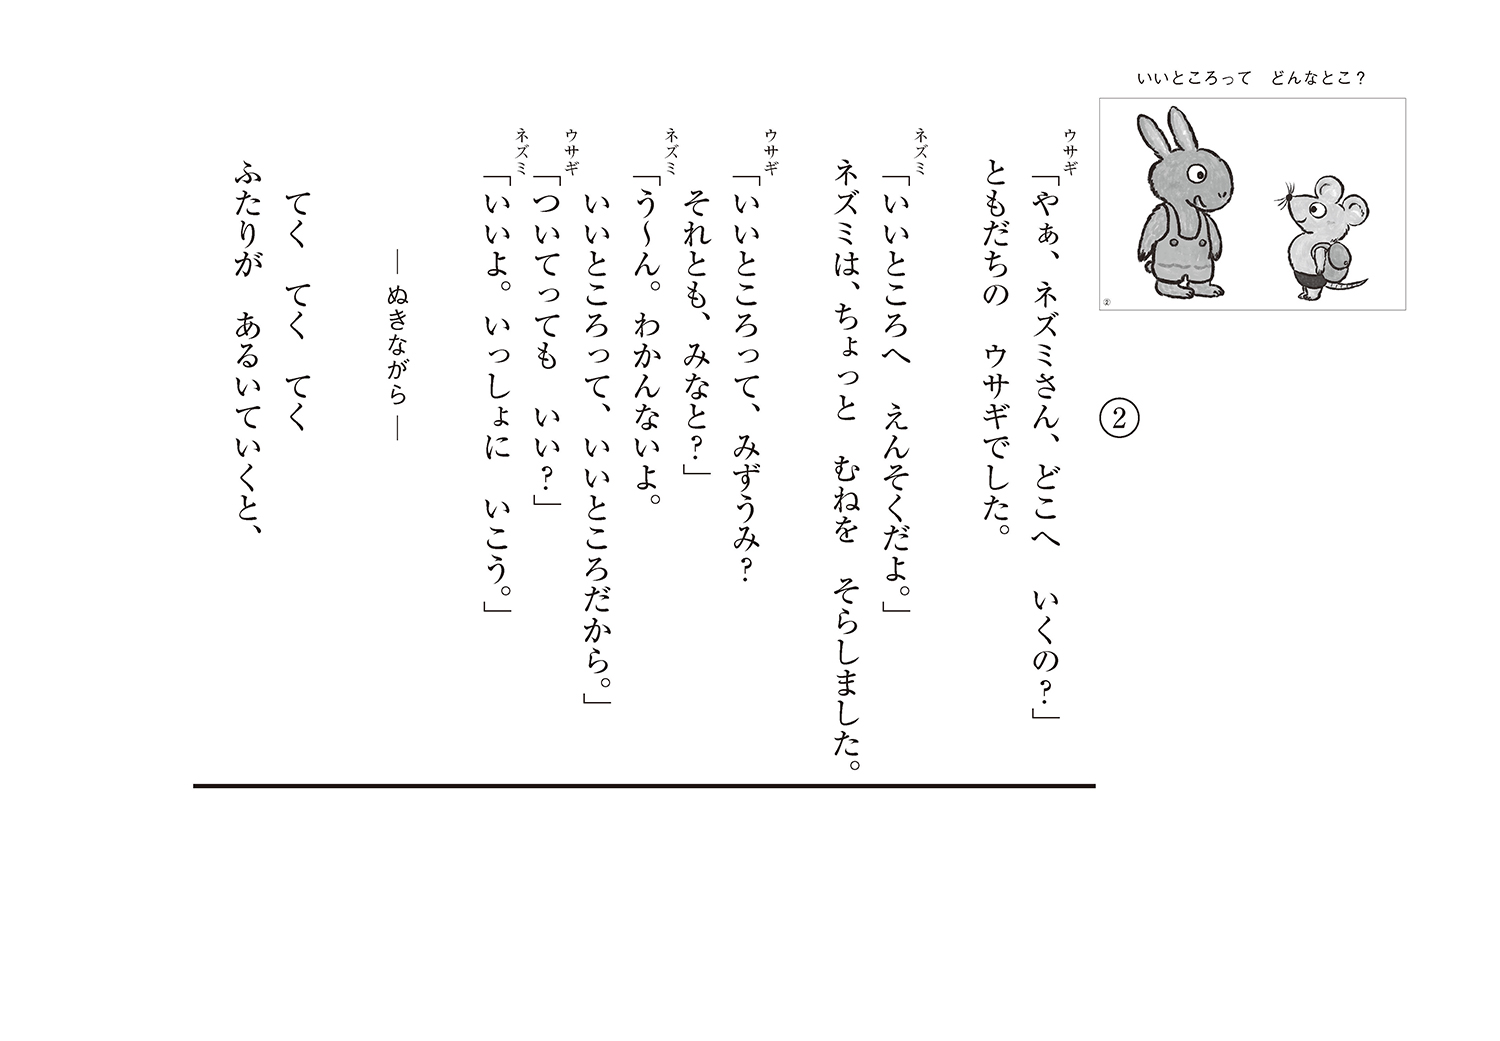 いいところって　どんなとこ？
②
②
ウサギ
「やぁ、ネズミさん、どこへ　いくの？」
ともだちの　ウサギでした。
ネズミ
「いいところへ　えんそくだよ。」
ネズミは、ちょっと　むねを　そらしました。
ウサギ
「いいところって、みずうみ？
それとも、みなと？」
ネズミ
「う〜ん。わかんないよ。
いいところって、いいところだから。」
ウサギ
「ついてっても　いい？」
ネズミ
「いいよ。いっしょに　いこう。」
―ぬきながら―
てく　てく　てく
ふたりが　あるいていくと、